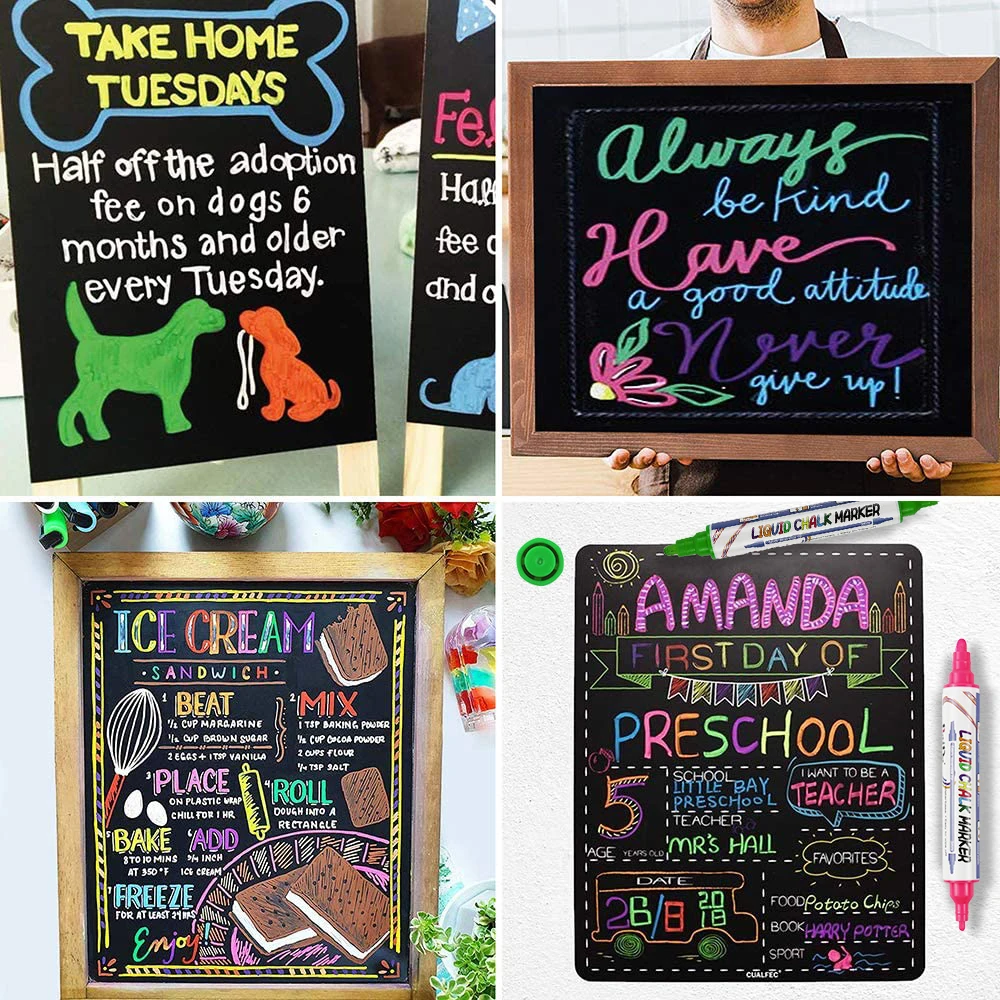 TAKE HOME
TUESDAYS
Half off the adoption
fee on dogs 6
months and older
every Tuesday.
Always
be kind
Have
a good attitude
Never
give up!
ICE CREAM
SANDWICH
1 BEAT
1/2 CUP MARGARINE
1/2 CUP BROWN SUGAR
2 EGGS + 1 TSP VANILLA
2 MIX
1 TSP BAKING POWDER
1/2 CUP COCOA POWDER
2 CUPS FLOUR
1/4 TSP SALT
3 PLACE
ON PLASTIC WRAP
CHILL FOR 1 HR
4 ROLL
DOUGH INTO A
RECTANGLE
5 BAKE
8 TO 10 MINS
AT 350°F
6 ADD
3/4 INCH
ICE CREAM
7 FREEZE
FOR AT LEAST 24 HRS
Enjoy!!
LIQUID CHALK MARKER
AMANDA
FIRST DAY OF
PRESCHOOL
5
AGE YEARS OLD
SCHOOL
LITTLE BAY
PRESCHOOL
TEACHER
MRS HALL
I WANT TO BE A
TEACHER
DATE
26/8 2018
FAVORITES
FOOD Potato Chips
BOOK HARRY POTTER
SPORT
CUALFEC
LIQUID CHALK MARKER